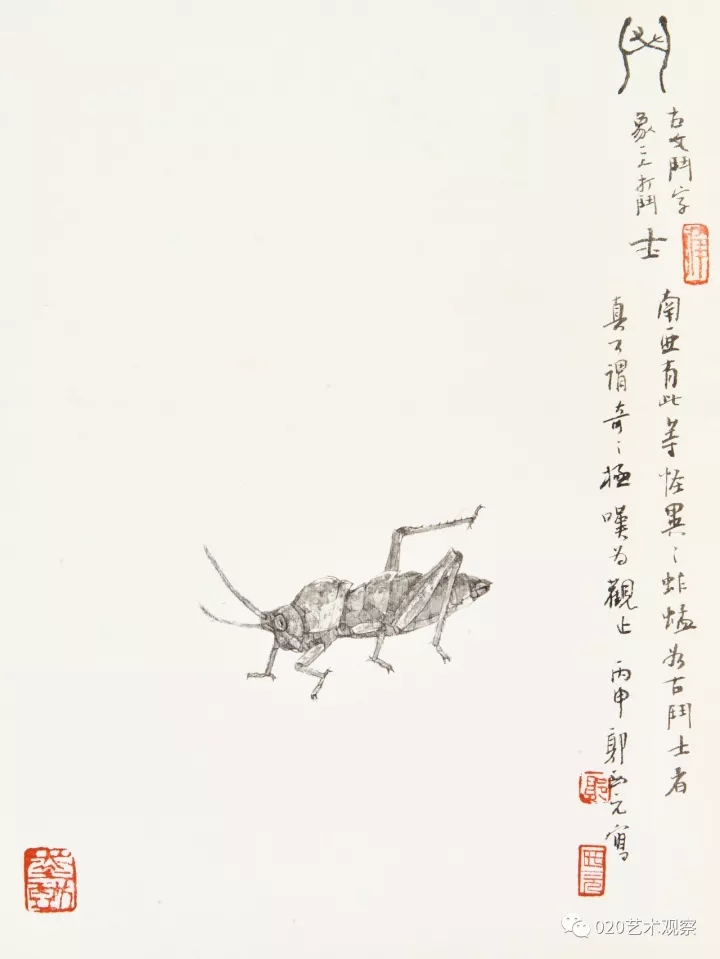 鬥
古文鬥字
象二人打鬥
士
南亜有此等怪異之蚱蜢古鬥士者
真可謂奇之極嘆为觀止 丙申郭西元寫
郭
西元
020艺术观察